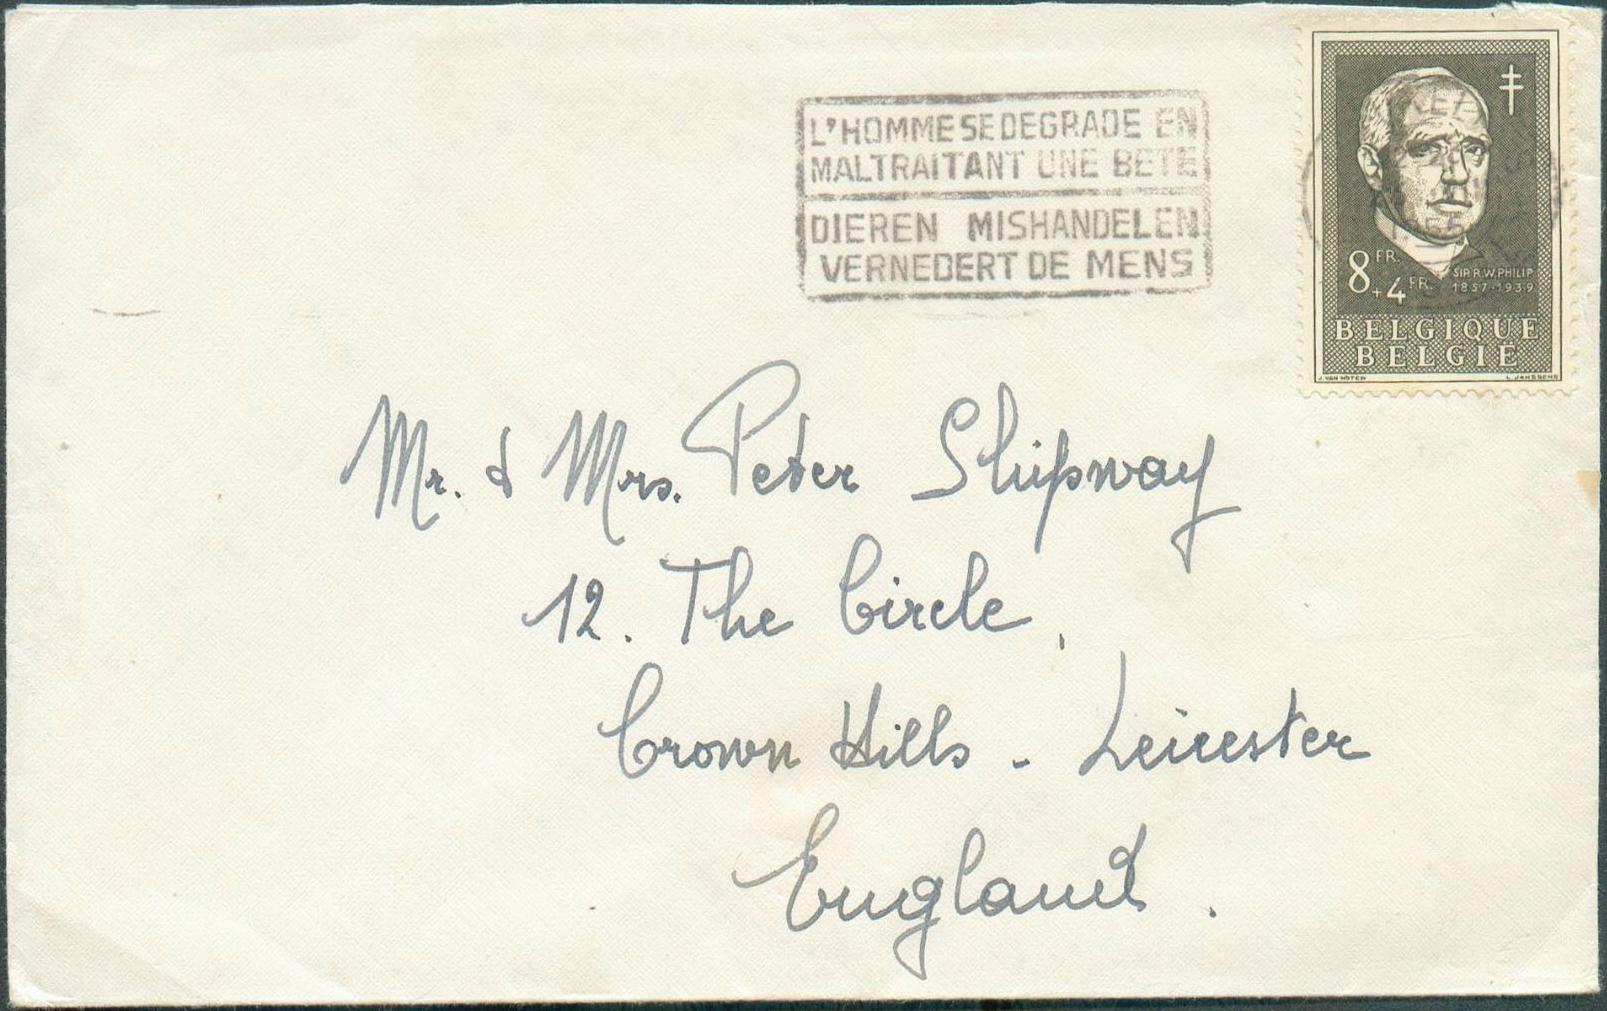 L'HOMME SE DEGRADE EN
MALTRAITANT UNE BETE
DIEREN MISHANDELEN
VERNEDERT DE MENS
8 FR.
+4 FR.
SIR R.W. PHILIP
1857-1939
BELGIQUE
BELGIË
J. VAN NOTEN L. JANSSENS
Mr. & Mrs. Peter Shipway
12. The Circle,
Crown Hills - Leicester
England.